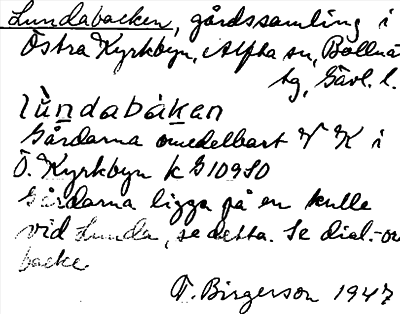 Lundabacken, gårdssamling i
Östra Kyrkbyn, Alfta sn, Bollnä
tg, Gävl. l.
lùndabàkan
Gårdarna omedelbart N K i
Ö. Kyrkbyn k G 109 SO
Gårdarna ligga på en kulle
vid Lunda, se detta. Se dial.-o
backe
F. Birgerson 1947